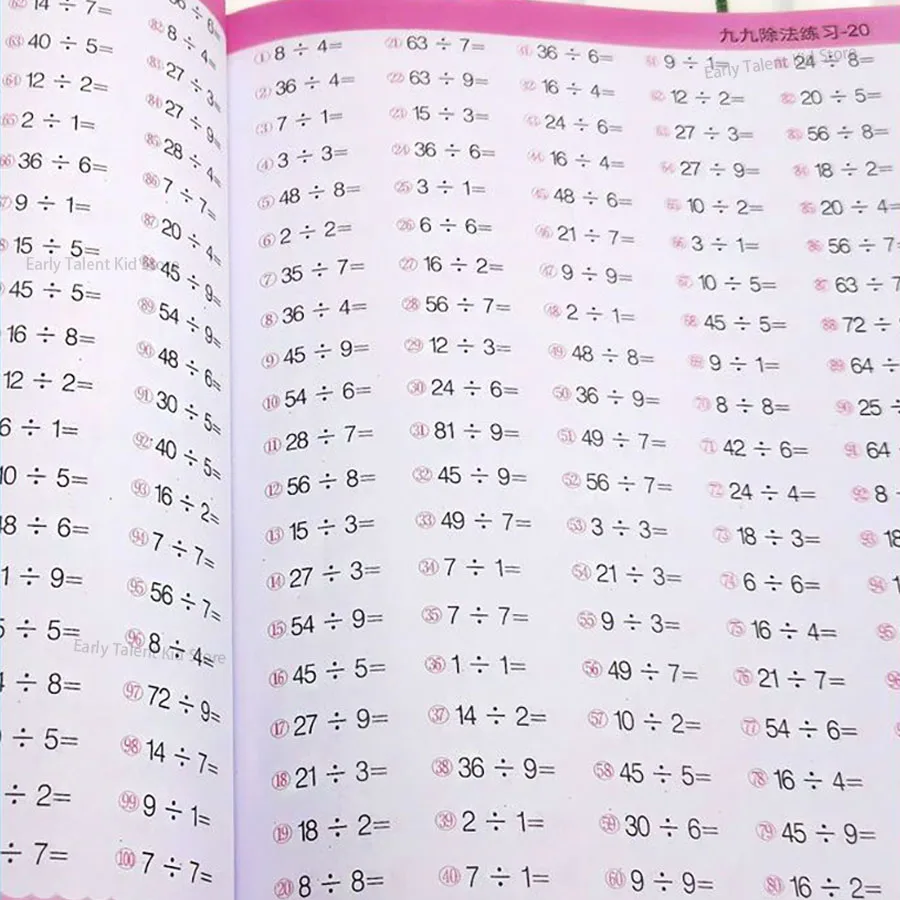 62 14 ÷ 7=
63 40 ÷ 5=
64 12 ÷ 2=
65 2 ÷ 1=
66 36 ÷ 6=
9 ÷ 1=
15 ÷ 5=
45 ÷ 5=
16 ÷ 8=
12 ÷ 2=
6 ÷ 1=
10 ÷ 5=
48 ÷ 6=
1 ÷ 9=
5 ÷ 5=
÷ 8=
÷ 5=
÷ 2=
÷ 7=
82 8 ÷ 4=
83 27 ÷ 3=
84 27 ÷ 9=
85 28 ÷ 4=
86 7 ÷ 7=
87 20 ÷ 4=
88 45 ÷ 9=
89 54 ÷ 9=
90 48 ÷ 6=
91 30 ÷ 5=
92 40 ÷ 5=
93 16 ÷ 2=
94 7 ÷ 7=
95 56 ÷ 7=
96 8 ÷ 4=
97 72 ÷ 9=
98 14 ÷ 7=
99 9 ÷ 1=
100 7 ÷ 7=
九九除法练习-20
1 8 ÷ 4=
2 36 ÷ 4=
3 7 ÷ 1=
4 3 ÷ 3=
5 48 ÷ 8=
6 2 ÷ 2=
7 35 ÷ 7=
8 36 ÷ 4=
9 45 ÷ 9=
10 54 ÷ 6=
11 28 ÷ 7=
12 56 ÷ 8=
13 15 ÷ 3=
14 27 ÷ 3=
15 54 ÷ 9=
16 45 ÷ 5=
17 27 ÷ 9=
18 21 ÷ 3=
19 18 ÷ 2=
20 8 ÷ 8=
21 63 ÷ 7=
22 63 ÷ 9=
23 15 ÷ 3=
24 36 ÷ 6=
25 3 ÷ 1=
26 6 ÷ 6=
27 16 ÷ 2=
28 56 ÷ 7=
29 12 ÷ 3=
30 24 ÷ 6=
31 81 ÷ 9=
32 45 ÷ 9=
33 49 ÷ 7=
34 7 ÷ 1=
35 7 ÷ 7=
36 1 ÷ 1=
37 14 ÷ 2=
38 36 ÷ 9=
39 2 ÷ 1=
40 7 ÷ 1=
41 36 ÷ 6=
42 16 ÷ 4=
43 24 ÷ 6=
44 16 ÷ 4=
45 48 ÷ 6=
46 21 ÷ 7=
47 9 ÷ 9=
48 2 ÷ 1=
49 48 ÷ 8=
50 36 ÷ 9=
51 49 ÷ 7=
52 56 ÷ 7=
53 3 ÷ 3=
54 21 ÷ 3=
55 9 ÷ 3=
56 49 ÷ 7=
57 10 ÷ 2=
58 45 ÷ 5=
59 30 ÷ 6=
60 9 ÷ 9=
61 9 ÷ 1=
62 12 ÷ 2=
63 27 ÷ 3=
64 27 ÷ 9=
65 10 ÷ 2=
66 3 ÷ 1=
67 10 ÷ 5=
68 45 ÷ 5=
69 9 ÷ 1=
70 8 ÷ 8=
71 42 ÷ 6=
72 24 ÷ 4=
73 18 ÷ 3=
74 6 ÷ 6=
75 16 ÷ 4=
76 21 ÷ 7=
77 54 ÷ 6=
78 16 ÷ 4=
79 45 ÷ 9=
80 16 ÷ 2=
81 24 ÷ 8=
82 20 ÷ 5=
83 56 ÷ 8=
84 18 ÷ 2=
85 20 ÷ 4=
86 56 ÷ 7
87 63 ÷ 7
88 72 ÷
89 64 ÷
90 25 ÷
91 64
92 8
93 18
94
95
Early Talent Kid Store
Early Talent Kid Store
Early Talent Kid Store